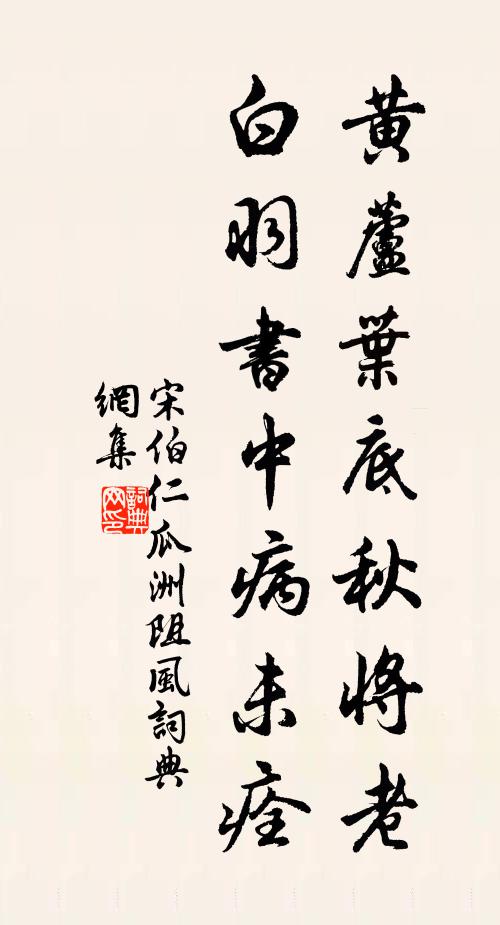 黄蘆葉底秋將老
白羽書中病未痊
宋伯仁瓜洲阻風詞典
網集
詞典
网印